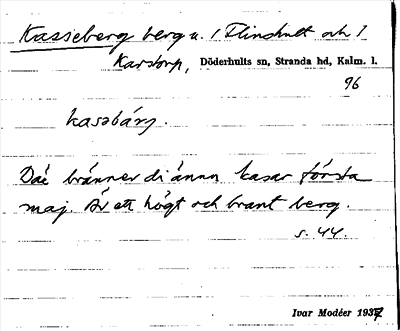 Kasseberg berg u. 1 Flinshult och 1
Karstorp, Döderhults sn, Stranda hd, Kalm. l.
96
kasəbárj.
Däe bránner di ánnu kasar första
maj. Är ett högt och brant berg.
s. 44.
Ivar Modéer 1937